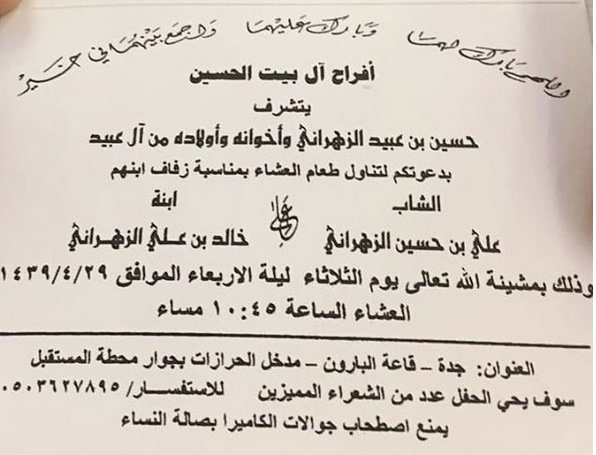 اللهم بارك لهما وبارك عليهما واجمع بينهما في خير
أفراح آل بيت الحسين
يتشرف
حسين بن عبيد الزهراني وأخوانه وأولاده من آل عبيد
بدعوتكم لتناول طعام العشاء بمناسبة زفاف ابنهم
الشاب ابنة
علي بن حسين الزهراني خالد بن علي الزهراني
وذلك بمشيئة الله تعالى يوم الثلاثاء ليلة الاربعاء الموافق ١٤٣٩/٤/٢٩
العشاء الساعة ١٠:٤٥ مساء
العنوان: جدة - قاعة البارون - مدخل الحرازات بجوار محطة المستقبل
سوف يحي الحفل عدد من الشعراء المميزين للاستفسار/ ٠٥٠٣٦٢٧٨٩٥
يمنع اصطحاب جوالات الكاميرا بصالة النساء